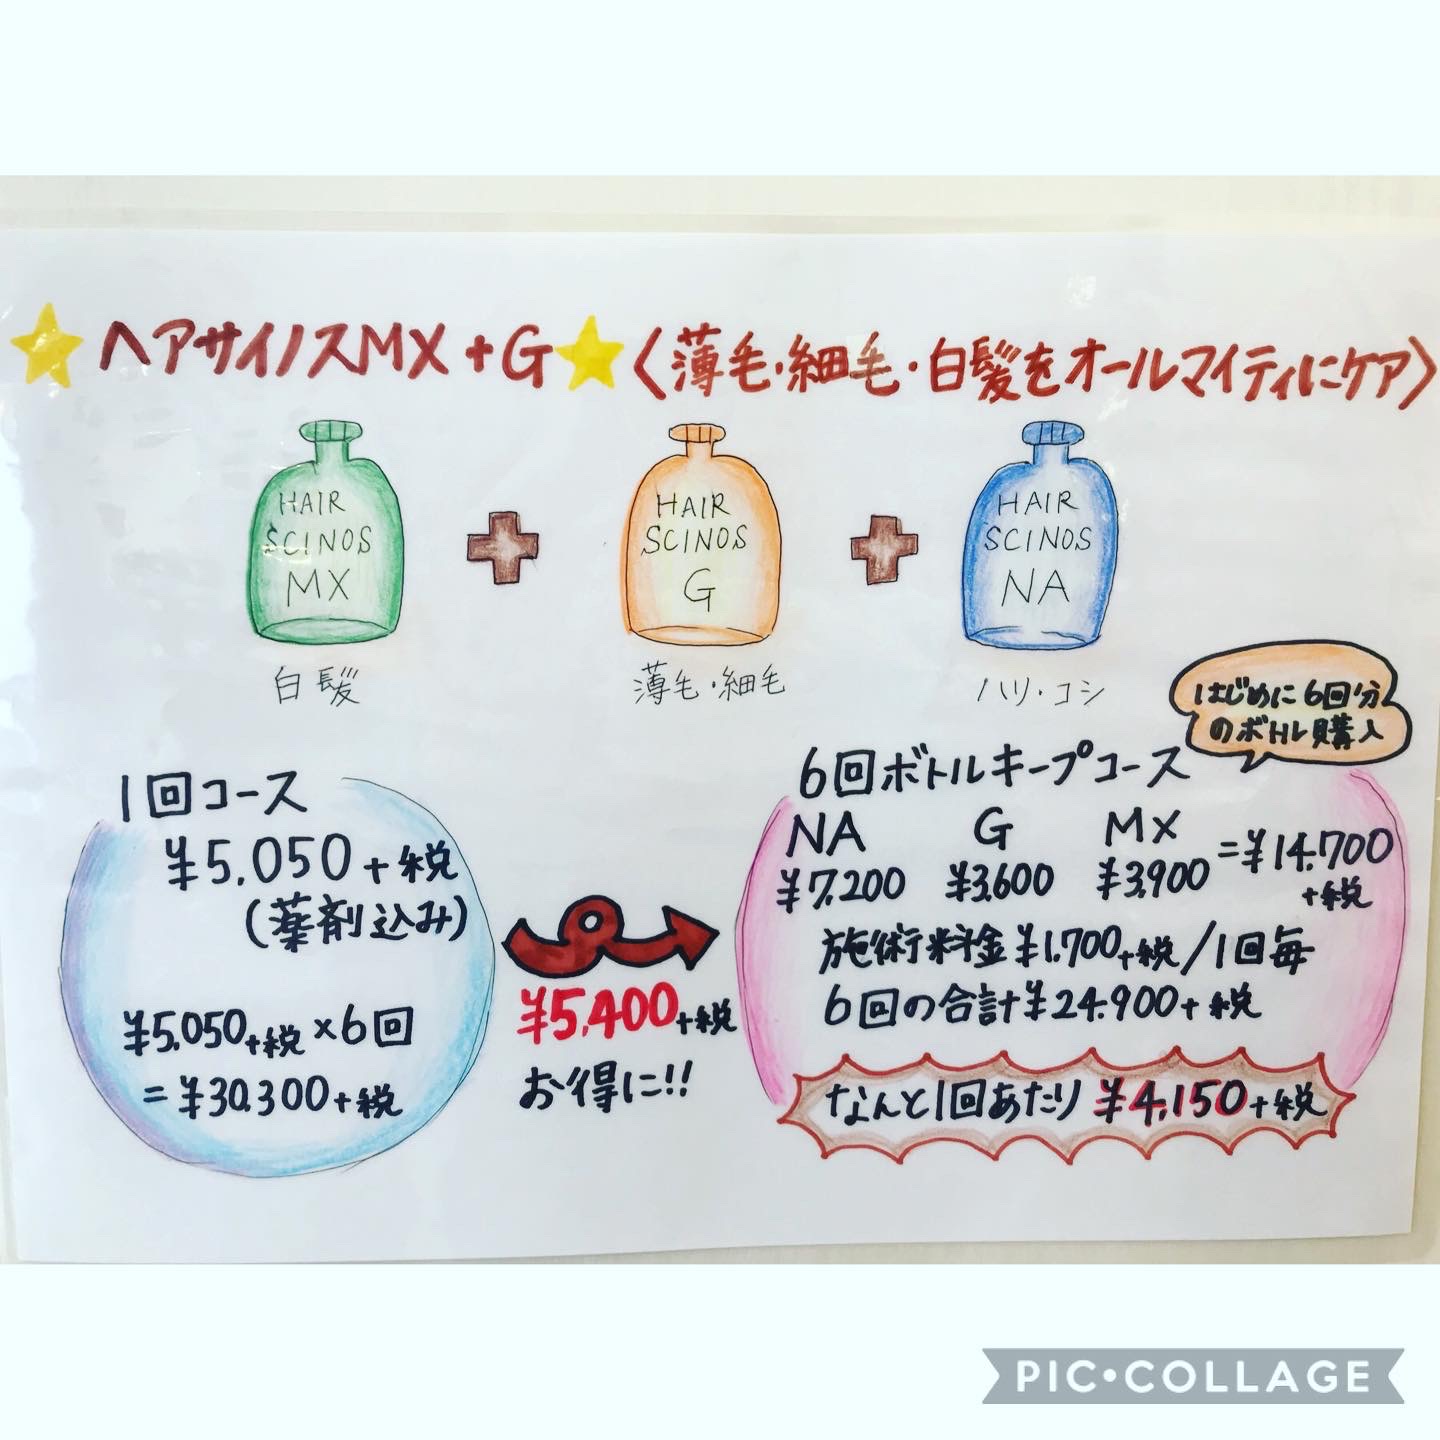 ヘアサイノスMX+G〈薄毛・細毛・白髪をオールマイティにケア〉
HAIR
SCINOS
MX
HAIR
SCINOS
G
HAIR
SCINOS
NA
白髪
薄毛・細毛
ハリ・コシ
はじめに6回分
のボトル購入
1回コース
¥5,050+税
(薬剤込み)
¥5,050+税×6回
=¥30,300+税
¥5,400+税
お得に!!
6回ボトルキープコース
NA G MX
¥7,200 ¥3,600 ¥3,900 =¥14,700
+税
施術料金¥1,700+税/1回毎
6回の合計¥24,900+税
なんと1回あたり¥4,150+税
PIC•COLLAGE